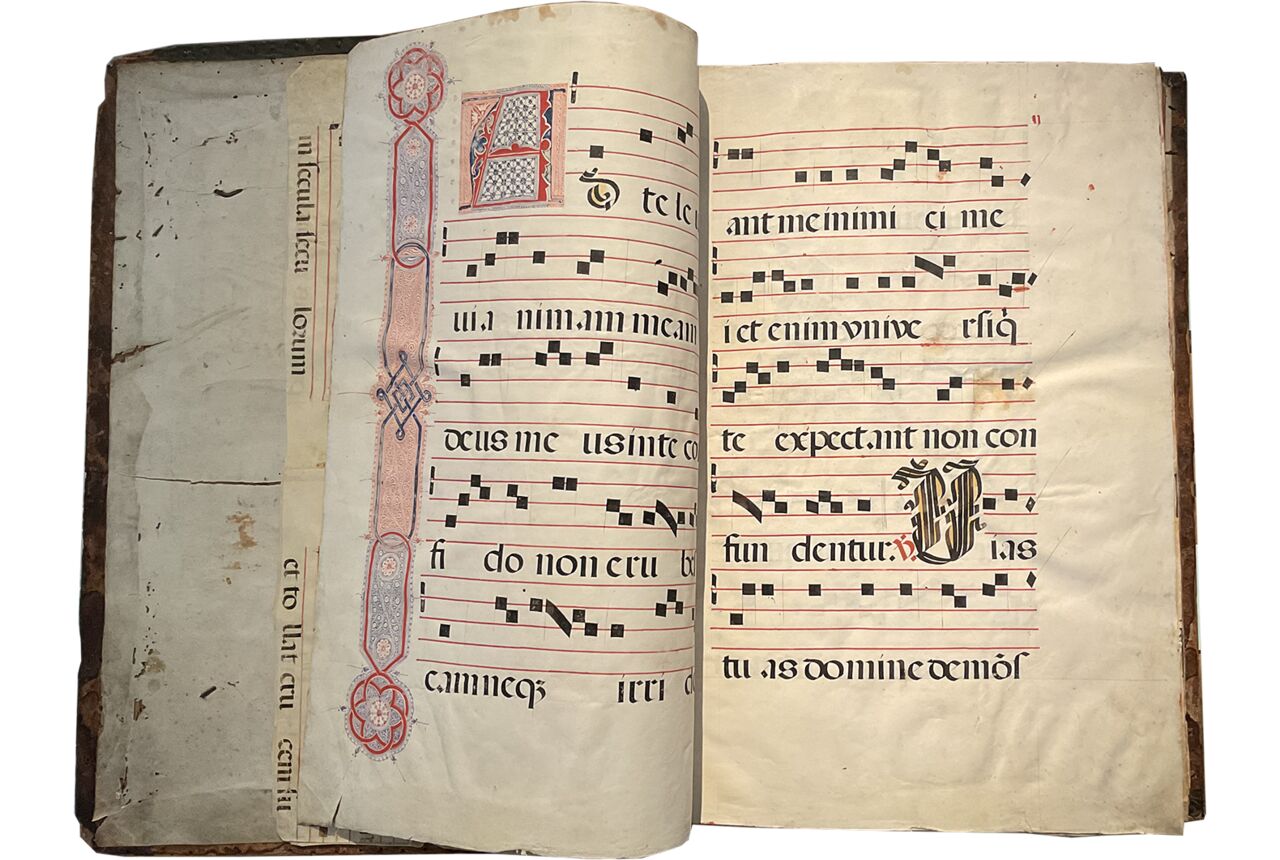 in secula secu lorum
et to llat cru cem su
AD te le
ui a nimam meam
deus me us in te co
fi do non eru be
cam neqꝫ irri
ant me inimi ci me
i et enim vnive rsi q̄
te expectant non con
fun dentur. ℣. Vias
tu as domine demōs